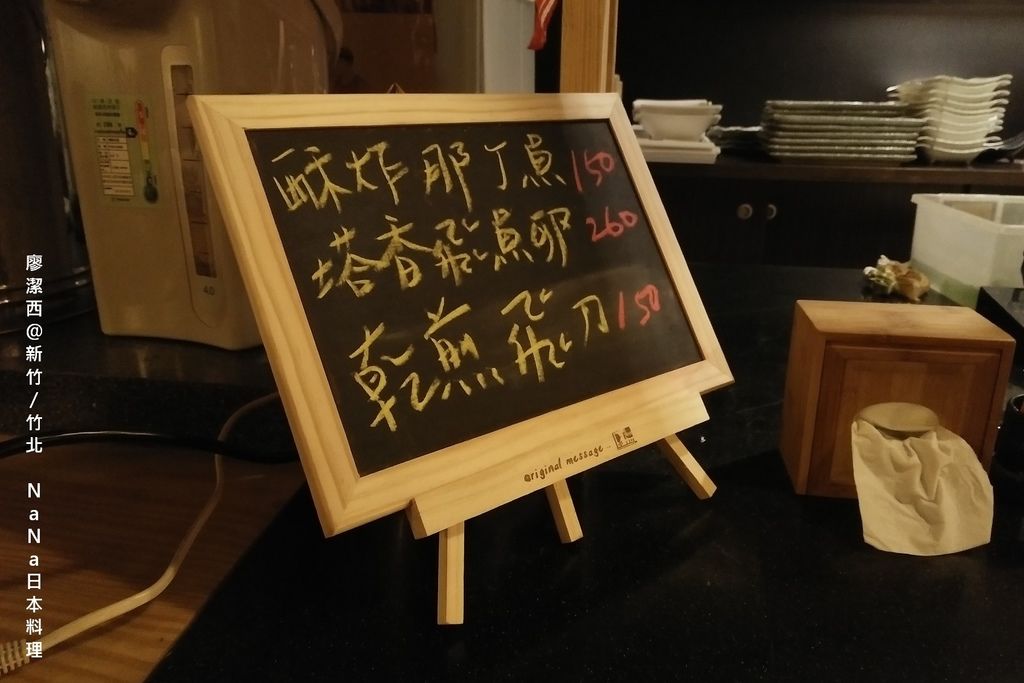 酥炸那丁魚 150
塔香飛魚卵 260
乾煎飛刀 150
original message...
4.0
廖潔西@新竹/竹北 NaNa日本料理